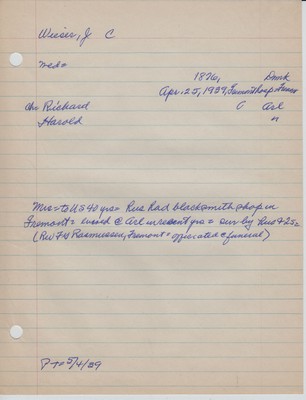 Wieser, J C
Mrs
1876, Dmrk
Apr. 25, 1959, Farm
ch Richard C Arl
Harold "
Mrs = to US 40 yrs = Rus had blacksmith shop in
Fremont = lived @ Arl in recent yrs = surv by Hus & 2 S =
(Rev F Rasmussen, Fremont = officiated @ funeral)
P-T = 5/4/59